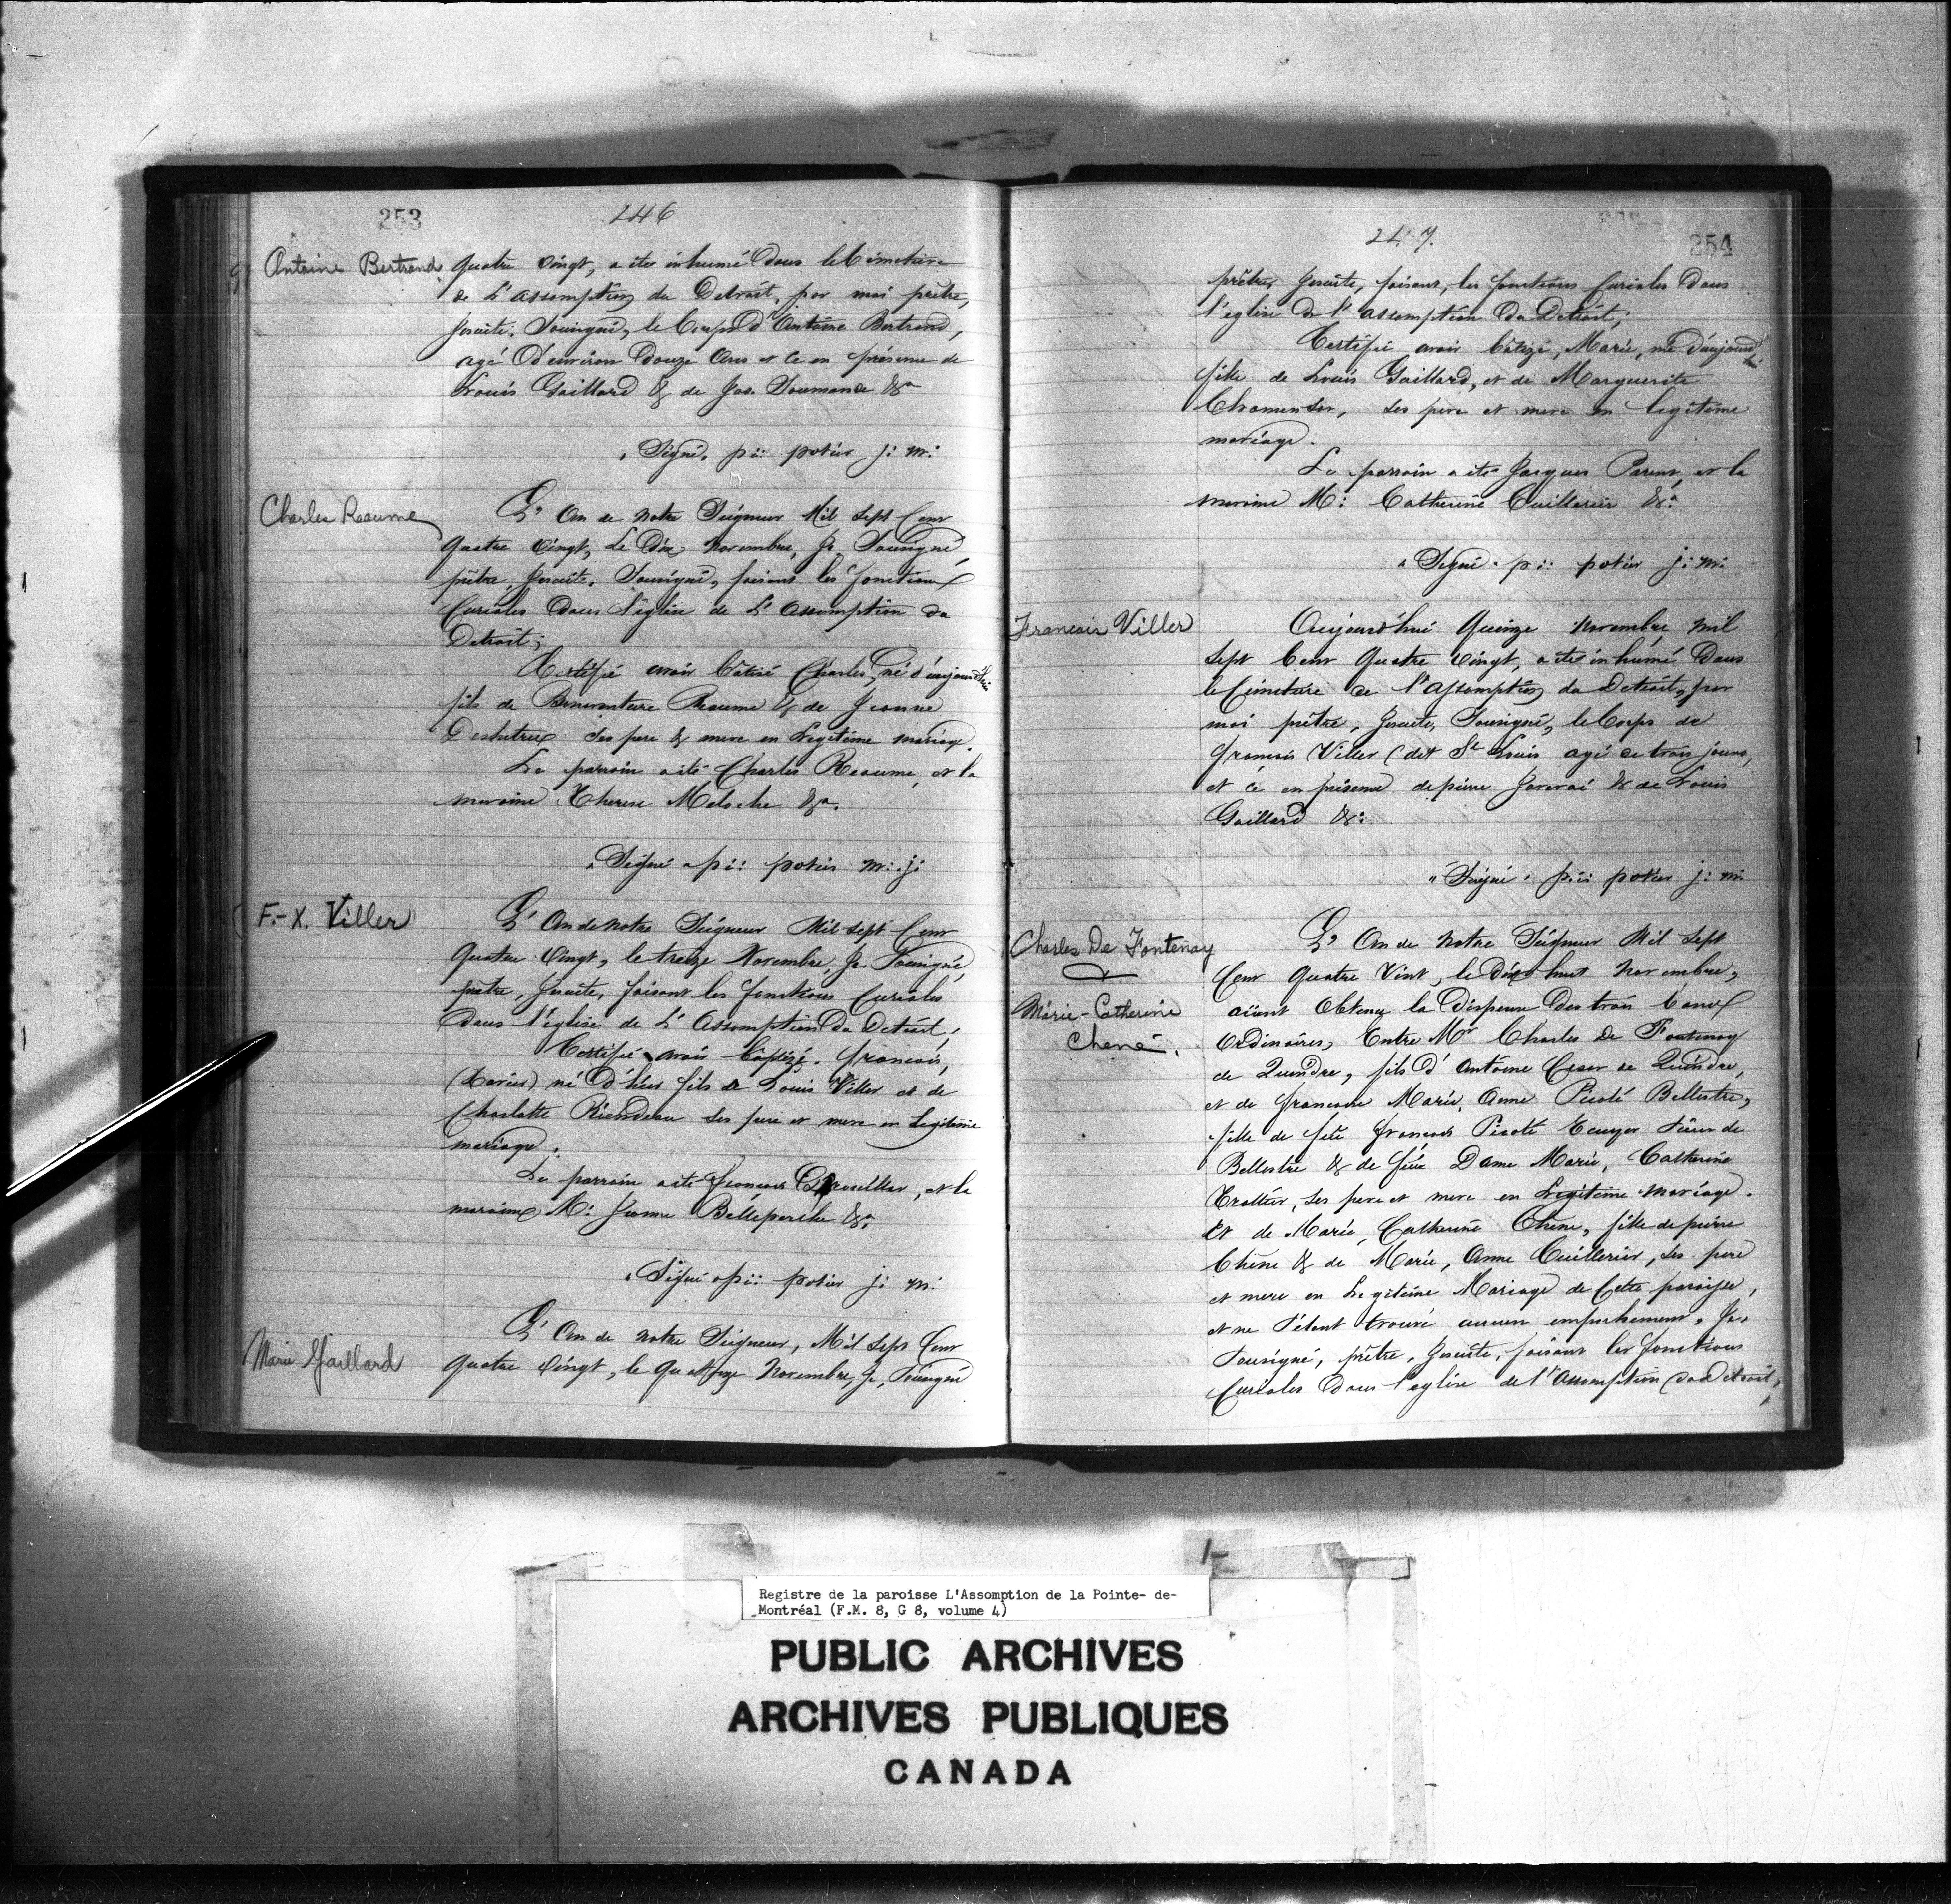 253
246
Antoine Bertrand
quatre vingt, a eté inhumé dans le Cimetiere
de L'assomption du Detroit, par moi prêtre,
Jesuite, Sousigné, le Corps d'Antoine Bertrand,
agé d'environ douze Ans et ce en présence de
Louis Gaillard & de Jos. Doumande &a
"Signé" pi: potier j: m:
Charles Reaume
L'An de Notre Seigneur Mil Sept Cent
quatre vingt, Le Dix Novembre, Je Sousigné,
prêtre, Jesuite, Sousigné, faisant les fonctions
Curiales dans l'église de L'Assomption du
Detroit;
Certifie avoir bâtisé Charles, né d'aujourd'hui
fils de Bonaventure Reaume & de Jeanne
Deshetres ses pere & mere en Legitime mariage.
Le parrain a eté Charles Reaume, et la
maraine Therese Meloche &a.
"Signé" pi: potier m: j:
F.-X. Viller
L'An de notre Seigneur Mil Sept Cent
quatre vingt, le treize Novembre, Je Sousigné,
prêtre, Jesuite, faisant les fonctions Curiales
dans l'église de L'Assomption du Detroit,
Certifie avoir bâptézé, francois,
(Xavier) né d'hier fils de Louis Viller et de
Charlotte Riendeau ses pere et mere en Legitime
mariage.
Le parrain a eté francois , et la
maraine M: Jeanne Belleperche &a
"Signé" pi: potier j: m:
Marie Gaillard
L'An de notre Seigneur, Mil Sept Cent
quatre vingt, le quatorze Novembre, Je, Sousigné
247.
254
prêtre, Jesuite, faisant, les fonctions Curiales dans
l'eglise de l'assomption du Detroit;
Certifié avoir bâtizé, Marie, né d'aujourd'hui
fille de Louis Gaillard, et de Marguerite
ses pere et mere en legitime
mariage.
Le parrain a eté Jacques Parent, et la
maraine M: Catherine Cuillerier &a
"Signé" pi: potier j: m:
Francois Viller
Aujourd'hui Quinze Novembre mil
Sept Cent Quatre vingt, a eté inhumé dans
le Cimetiere de l'assomption du Detroit, par
moi prêtre, Jesuite, Sousigné, le Corps de
francois Viller (dit St Louis agé de trois jours,
et ce en présence de pierre & de Louis
Gaillard &:
"Signé" pi: potier j: m:
Charles De Fontenay
&
Marie-Catherine
Chené.
L'An de Notre Seigneur Mil Sept
Cent Quatre Vint, le Dix huit Novembre,
aiant Obtenu la Dispense des trois bancs
Ordinaires, Entre Mr Charles De Fontenay
de Quindre, fils d'Antoine Cesar de Quindre,
et de francoise Marie, Anne Picoté Bellestre,
fille de feu francois Picoté Ecuyer Sieur de
Bellestre & de feüe Dame Marie, Catherine
Trottier, ses pere et mere en Legitime mariage.
Et de Marie, Catherine Chene, fille de pierre
Chene & de Marie, Anne Cuillerier, ses pere
et mere en Legitime Mariage de Cette paroisse,
et ne s'étant trouvé aucun empechement, Je,
Sousigné, prêtre, Jesuite, faisant les fonctions
Curiales dans l'eglise de l'Assomption du Detroit,
Registre de la paroisse L'Assomption de la Pointe- de-
Montréal (F.M. 8, G 8, volume 4)
PUBLIC ARCHIVES
ARCHIVES PUBLIQUES
CANADA